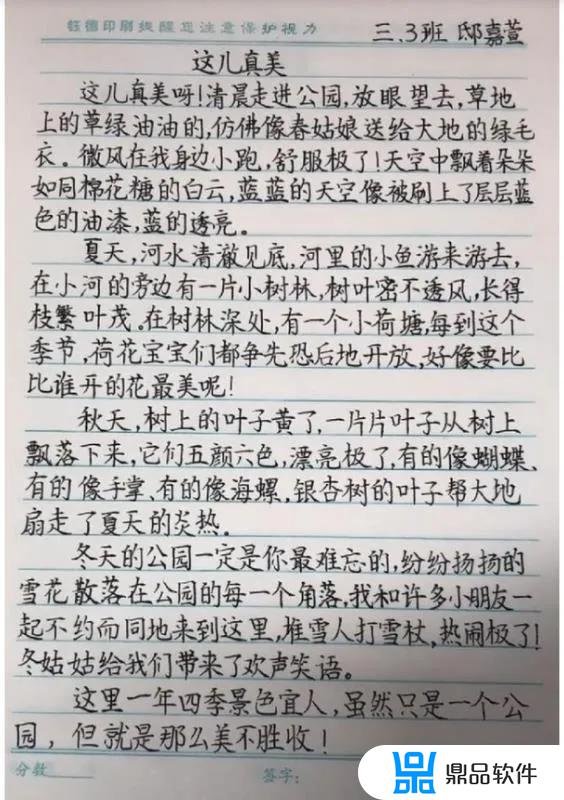 钰德印刷提醒您注意保护视力
三.3班 邸嘉萱
这儿真美
这儿真美呀!清晨走进公园,放眼望去,草地
上的草绿油油的,仿佛像春姑娘送给大地的绿毛
衣。微风在我身边小跑,舒服极了!天空中飘着朵朵
如同棉花糖的白云,蓝蓝的天空像被刷上了层层蓝
色的油漆,蓝的透亮。
夏天,河水清澈见底,河里的小鱼游来游去,
在小河的旁边有一片小树林,树叶密不透风,长得
枝繁叶茂。在树林深处,有一个小荷塘,每到这个
季节,荷花宝宝们都争先恐后地开放,好像要比
比谁开的花最美呢!
秋天,树上的叶子黄了,一片片叶子从树上
飘落下来,它们五颜六色,漂亮极了,有的像蝴蝶、
有的像手掌、有的像海螺,银杏树的叶子帮大地
扇走了夏天的炎热。
冬天的公园一定是你最难忘的,纷纷扬扬的
雪花散落在公园的每一个角落,我和许多小朋友一
起不约而同地来到这里,堆雪人打雪杖,热闹极了!
冬姑姑给我们带来了欢声笑语。
这里一年四季景色宜人,虽然只是一个公
园,但就是那么美不胜收!
分数
签字:
鼎品软件